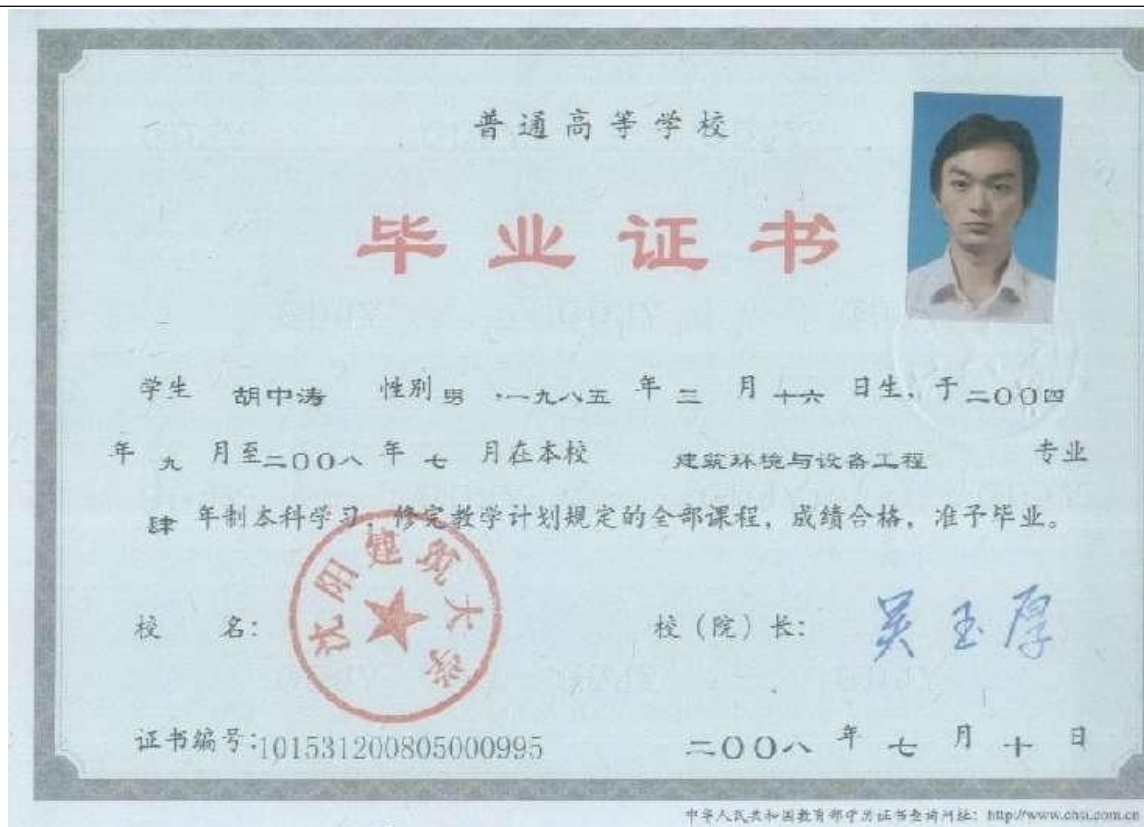 普通高等学校
毕业证书
学生 胡中涛 性别 男 ,一九八五 年 三 月 十六 日生, 于 二〇〇四
年 九 月至 二〇〇八 年 七 月在本校 建筑环境与设备工程 专业
肆 年制本科学习, 修完教学计划规定的全部课程, 成绩合格, 准予毕业。
沈阳建筑大学
校 名: 校（院）长: 吴玉厚
证书编号:101531200805000995 二〇〇八 年 七 月 十 日
中华人民共和国教育部学历证书查询网址: http://www.chsi.com.cn